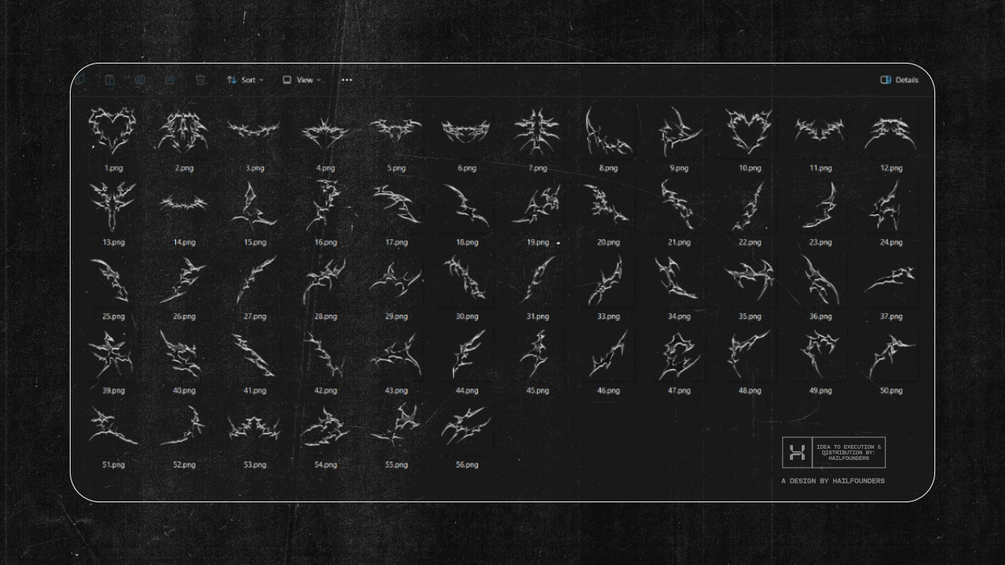 Sort
View
Details
1.png 2.png 3.png 4.png 5.png 6.png 7.png 8.png 9.png 10.png 11.png 12.png
13.png 14.png 15.png 16.png 17.png 18.png 19.png 20.png 21.png 22.png 23.png 24.png
25.png 26.png 27.png 28.png 29.png 30.png 31.png 33.png 34.png 35.png 36.png 37.png
39.png 40.png 41.png 42.png 43.png 44.png 45.png 46.png 47.png 48.png 49.png 50.png
51.png 52.png 53.png 54.png 55.png 56.png
IDEA TO EXECUTION &
DISTRIBUTION BY:
HAILFOUNDERS
A DESIGN BY HAILFOUNDERS